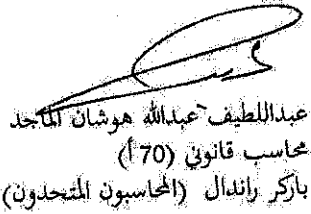 عبداللطيف عبدالله هوشان الماجد
محاسب قانوني (70 أ)
باركر راندال (المحاسبون المتحدون)